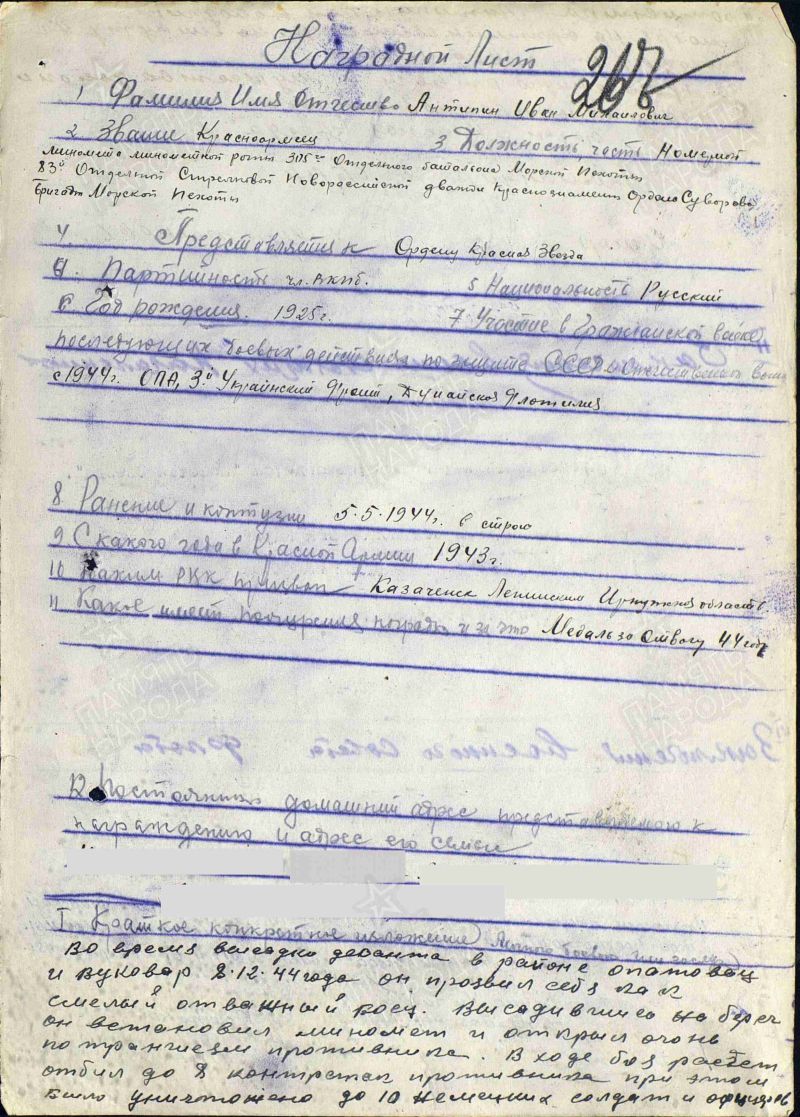 Наградной Лист
1 Фамилия Имя Отчество Антипин Иван Михайлович
2 Звание Красноармеец 3 Должность часть Номерной
миномета минометной роты 305го Отдельного батальона Морской Пехоты
83й Отдельной Стрелковой Новороссийской дважды Краснознаменн Ордена Суворова
бригады Морской Пехоты
4. Представляется к Ордену Красная Звезда
Партийность чл. ВКПб. 5 Национальность Русский
6 Год рождения 1925г. 7 Участие в Гражданской войне
последующих боевых действиях по защите СССР и отечественной войне
с 1944г. ОПА, 3й Украинский Фронт, Дунайская Флотилия
8 Ранение и контузии 5.5.1944г. в строю
9 С какого года в Красной Армии 1943г.
10 Каким РВК призван Казаченск Ленинским Иркутской области
11 Какое имеет поощрения награды и за что Медаль за отвагу 44 года
Заключение военного совета флота
12 Постоянный домашний адрес представляемого к
награждению и адрес его семьи
I Краткое конкретное изложение личного боевого
Во время высадки десанта в районе опатовац
и Вуковар 8.12.44 года он проявил себя как
смелый отважный боец. Высадившись на берег
он встановил миномет и открыл огонь
по траншеям противника. В ходе боя расчет
отбил до 8 контратак противника при этом
было уничтожено до 10 немецких солдат и офицеров
ПАМЯТЬ НАРОДА